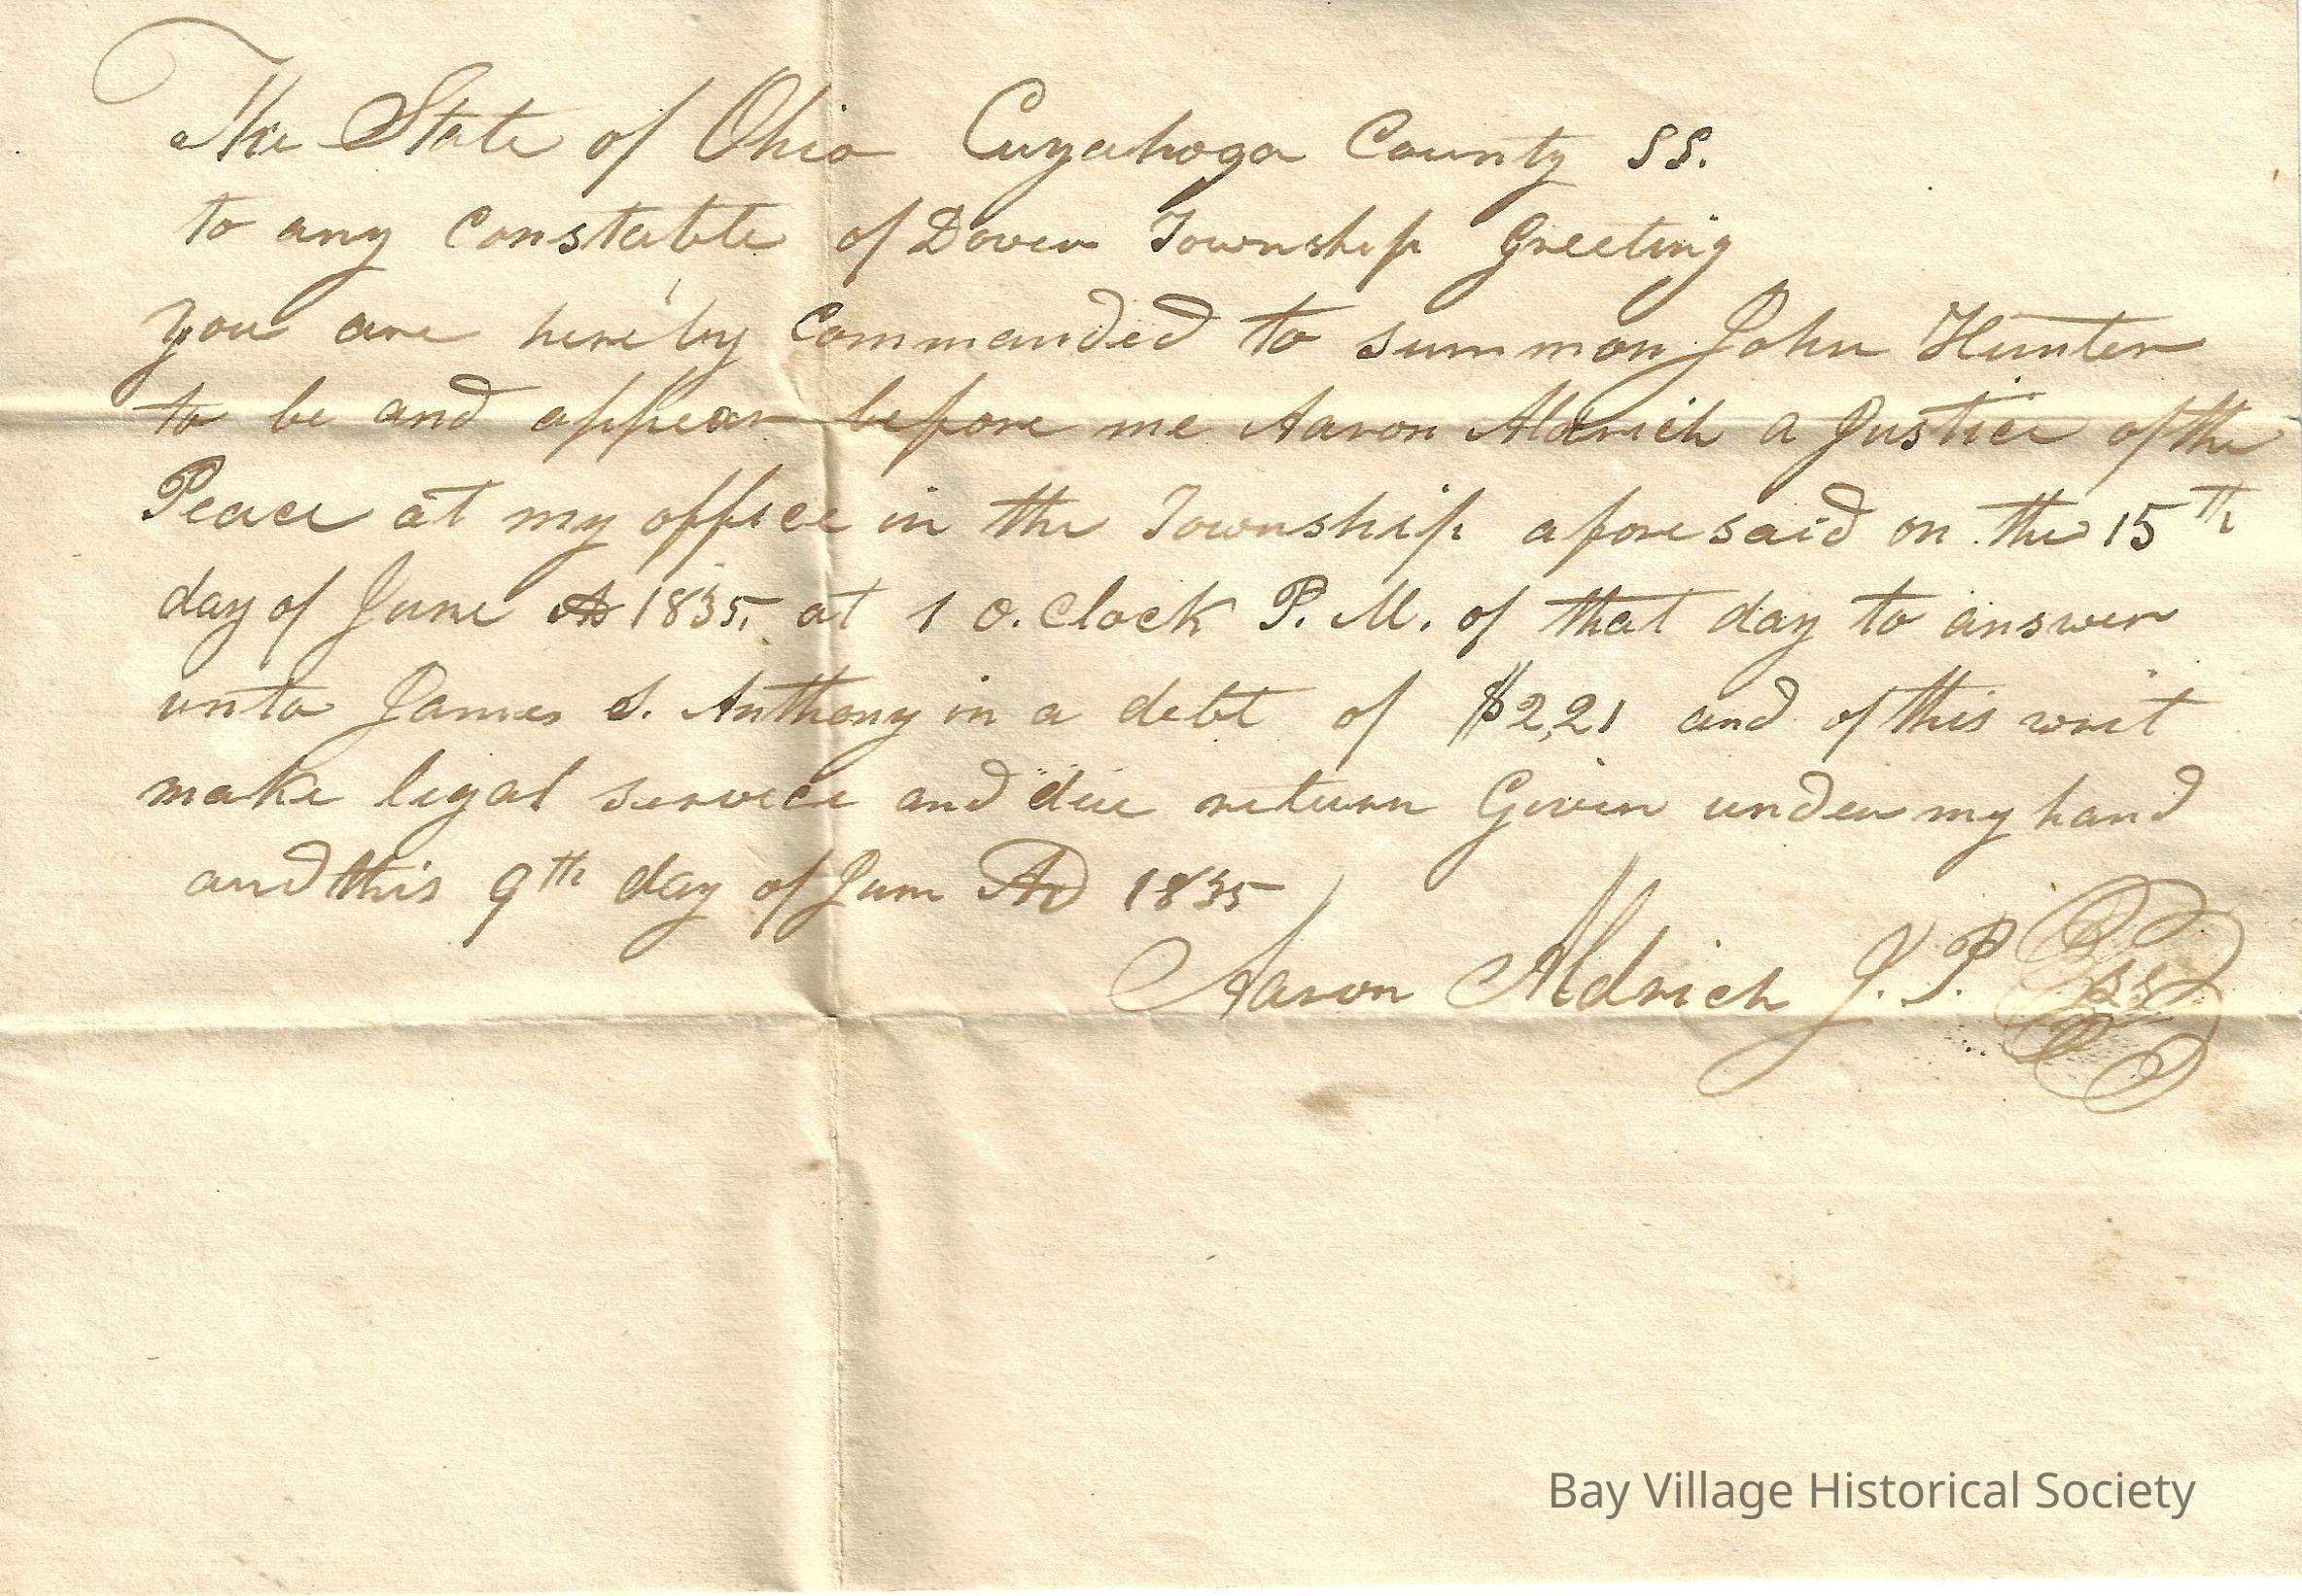 The State of Ohio Cuyahoga County SS.
to any Constable of Dover Township Greeting
you are hereby Commanded to summon John Hunter
to be and appear before me Aaron Aldrich a Justice of the
Peace at my office in the Township aforesaid on the 15th
day of June AD 1835, at 1 O. Clock P. M. of that day to answer
unto James S. Anthony in a debt of $2,21 and of this writ
make legal service and due return Given under my hand
and this 9th day of June AD 1835
Aaron Aldrich J. P.
Bay Village Historical Society